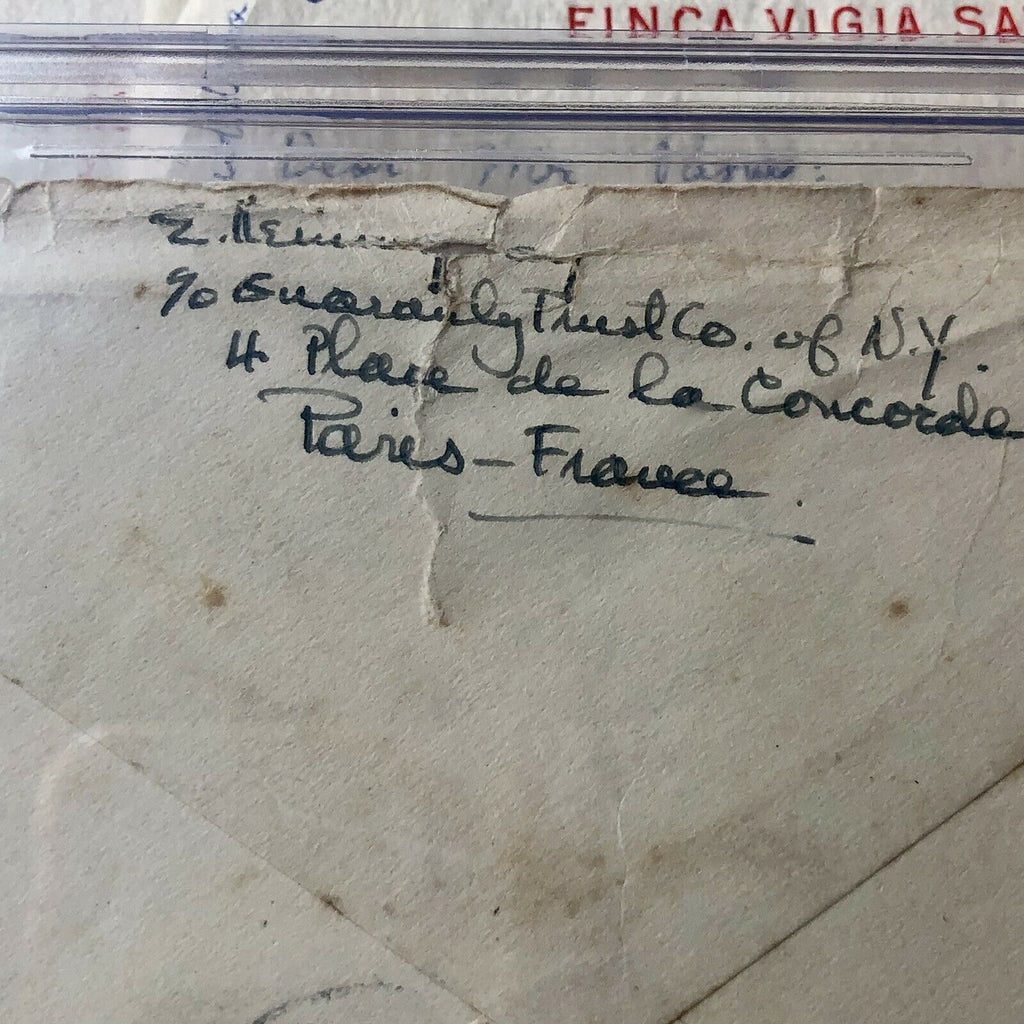 FINCA VIGIA SA
Dear Mr
E. Heming
c/o Guaranty Trust Co. of N.Y.
4 Place de la Concorde
Paris – France.